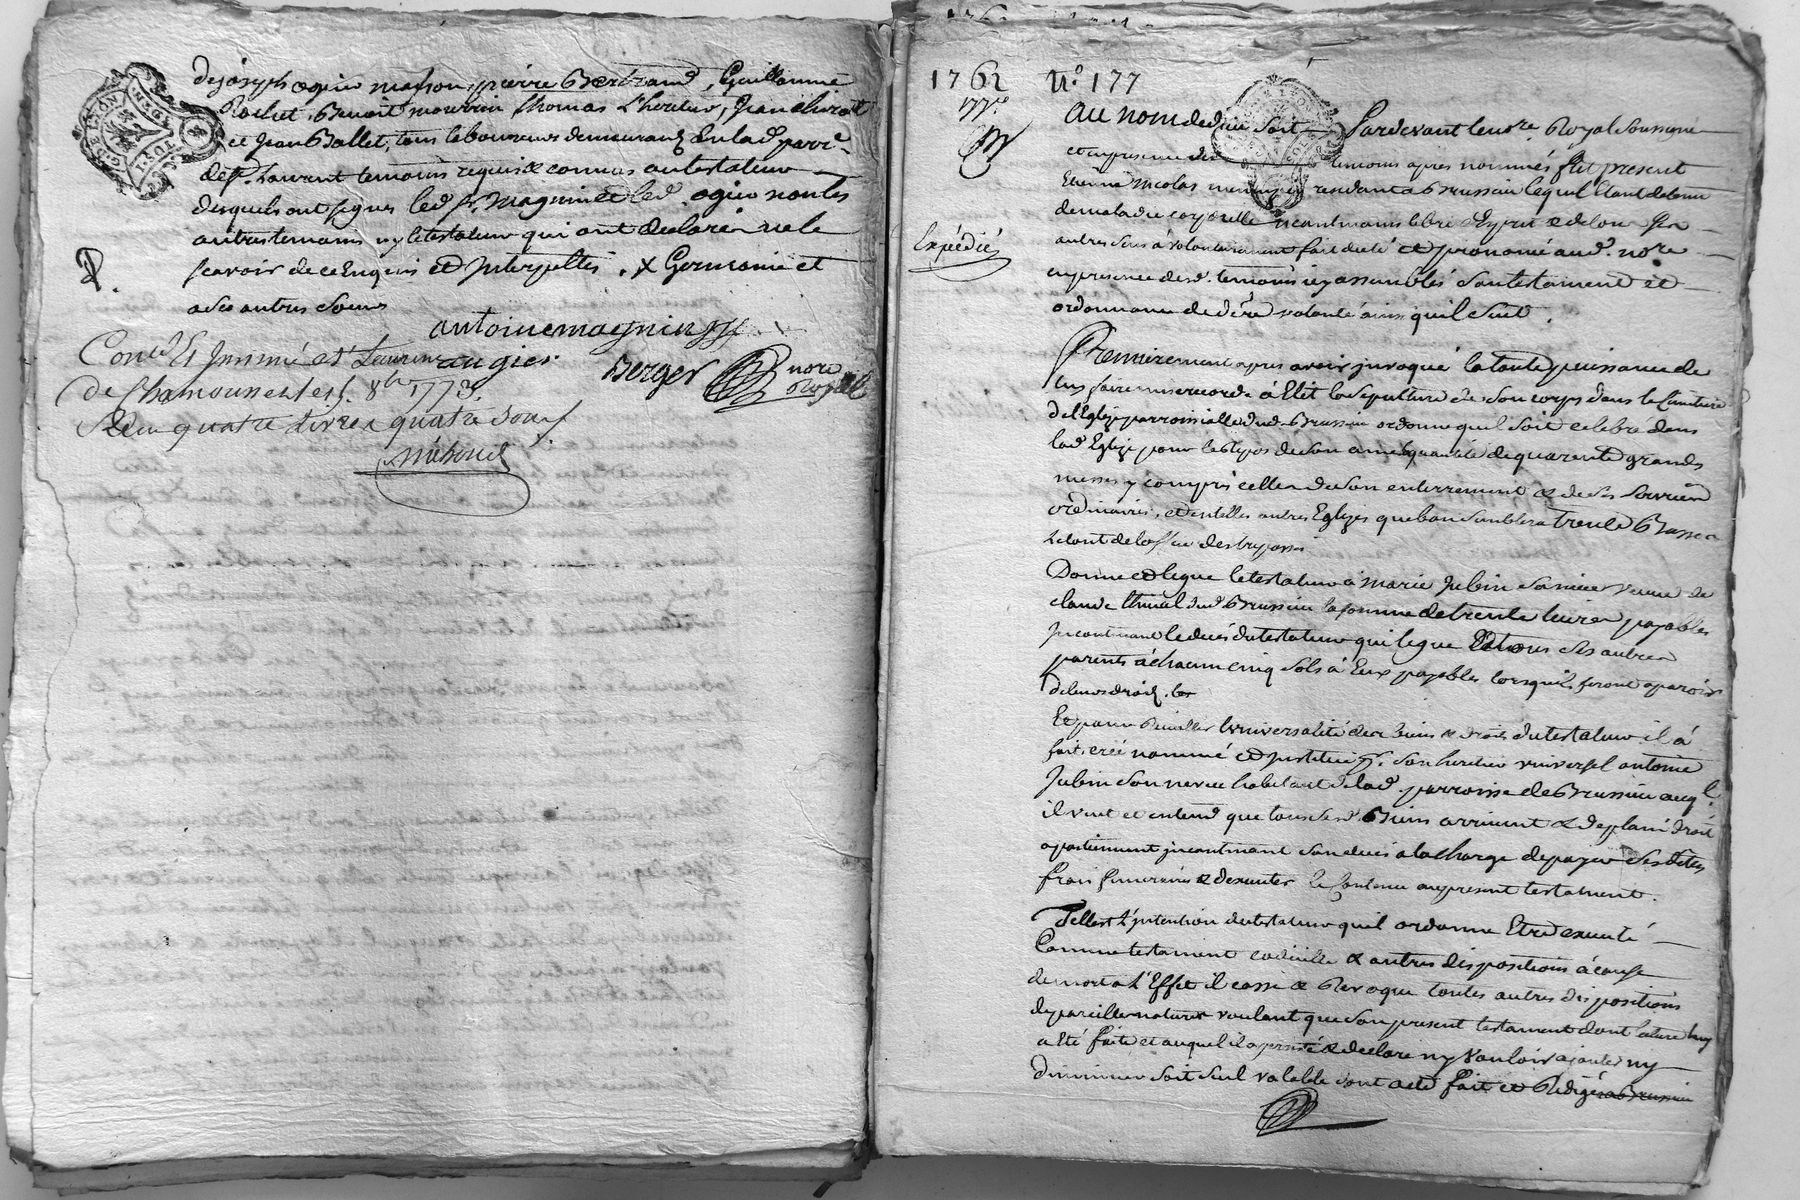 de joseph ogier masson, pierre Bertrand, Guillaume
Rochet, Benoit mourrin thomas L'heritier, Jean
et Jean Ballet, tous laboureurs demeurans en lad. parr.e
de St. Laurent temoins requis & connus au testateur
desquels ont signés led. Sr. Magnin et led. ogier non les
autres temoins ny le testateur qui ont declaré ne le
scavoir de ce Enquis et Interpellés. x Germanie et
a ses autres soeurs
antoine magnin
augier
Berger nore
Royal
Conlé Et Insinué a St Laurent
de Chamousset le 5. 8bre 1773.
Reçu quatre livres quatre sous

1762 N.o 177
177.e
Expédié
au nom de dieu soit Pardevant le no.re Royal soussigné
et en presence des temoins apres nommés fut present
Etienne Nicolas residant a Brussieu lequel Etant detenu
de maladie corporelle neantmoins libre d'Esprit & de tous ses
autres sens a volontairement fait dicté et prononcé aud. no.re
en presence desd. temoins icy assemblés son testament et
ordonnance de dere volonté ainsi qu'il suit.
Premierement apres avoir invoqué la toute puissance de
faire misericorde à Elit la sepulture de son corps dans le Cimetiere
de l'Eglize parroissialle dud. Brussieu ordonne quil soit celebré dans
lad. Eglize pour le repos de son ame la quantité de quarente grandes
messes y compris celles de son enterrement & de ses services
ordinaires, et en telles autres Eglizes que bon semblera trente Basses
le tout de loffice des trepassés
Donne et legue le testateur à marie Jubin sa niece veuve de
claude dud. Brussieu la somme de trente livres payables
Incontinant le deces du testateur qui legue à tous ses autres
parents à chacun cinq sols à Eux payables lorsquils feront aparoir
de leurs droits.
Et pour Receuillir Luniversalité des biens & droits du testateur il à
fait, créé nommé et Institué pr. son heritier universel antoine
Jubin son neveu habitant de lad. parroisse de Brussieu auql.
il veut et entend que tous sesd. Biens arrivent & de plain droit
apartiennent incontinant son deces a la charge de payer ses dettes
frais funeraires & d'executer le Contenu au present testament.
Telle est L'intention du testateur quil ordonne Etre executé
Comme testament codicille & autres dispositions à cause
de mort a L'Effet il casse & Revoque toutes autres dispositions
de pareille nature voulant que son present testament dont lecture luy
a Eté faite et auquel il a persisté & declare ny Vouloir ajouter ny
diminuer soit seul valable dont acte fait et Redigé a Brussieu